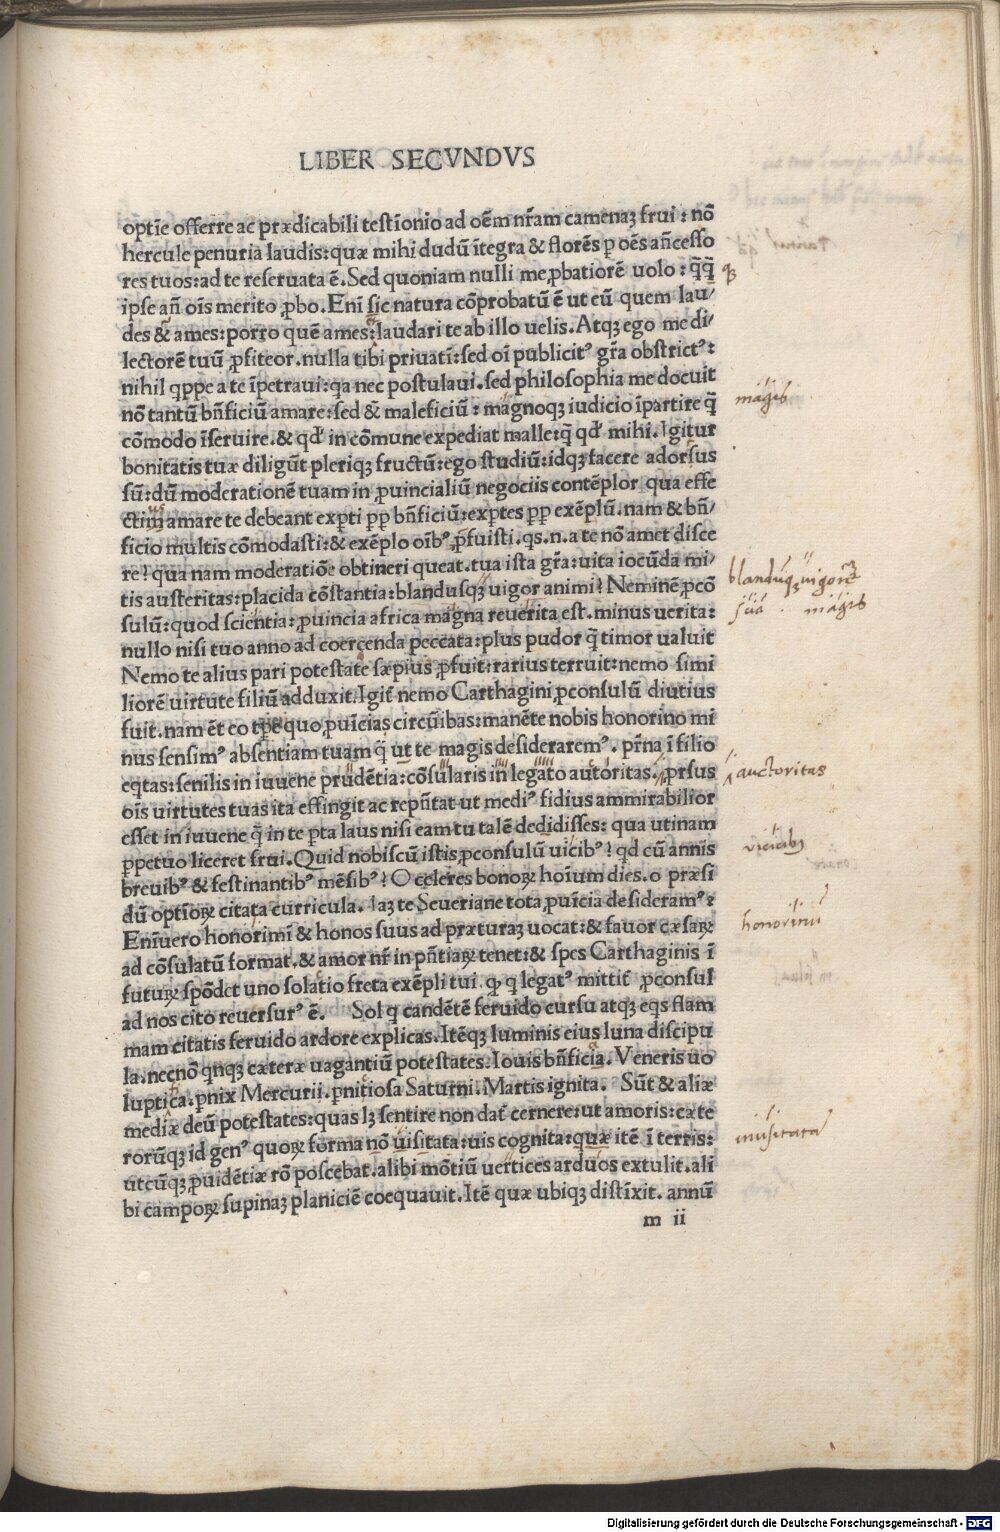 LIBER SECVNDVS
optīe offerre ac prædicabili testīonio ad oēm nr̄am camenaꝫ frui : nō
hercule penuria laudis: quæ mihi dudū ītegra & florēs ꝑ oēs añcesso
res tuos: ad te reseruata ē. Sed quoniam nulli me ꝓbatiorē uolo : q̄q̄
ipse añ oīs merito ꝓbo. Enī sic natura cōprobatū ē ut eū quem lau/
des & ames: porro quē ames: laudari te ab illo uelis. Atqꝫ ego me di/
lectorē tuū ꝓfiteor. nulla tibi priuatī: sed oī publicitꝰ gr̄a obstrictꝰ:
nihil qppe a te īpetraui: qa nec postulaui. sed philosophia me docuit
nō tantū bn̄ficiū amare: sed & maleficiū : magnoqꝫ iudicio īpartire q̄
cōmodo īseruire. & qd̓ in cōmune expediat malle: q̄ qd̓ mihi. Igitur
bonitatis tuæ diligūt pleriqꝫ fructū: ego studiū: idqꝫ facere adorsus
sū: dū moderationē tuam in ꝓuincialiū negociis contēplor qua effe
ctim amare te debeant exꝑti ꝓꝑ bn̄ficiū: exꝑtes ꝓꝑ exēplū. nam & bn̄/
ficio multis cōmodasti: & exēplo oībꝰ ꝓfuisti. qs. n. a te nō amet disce
re? qua nam moderatiōe obtineri queat. tua ista gr̄a: uita iocūda mi/
tis austeritas: placida cōstantia: blandusqꝫ uigor animi? Neminē ꝓcō
sulū: quod scientia: ꝓuincia africa magna reuerita est. minus uerita:
nullo nisi tuo anno ad coercenda peccata: plus pudor q̄ timor ualuit
Nemo te alius pari potestate sæpius ꝓfuit: rarius terruit: nemo simi
liorē uirtute filiū adduxit. Igit̄ nemo Carthagini ꝓconsulū diutius
fuit. nam ēt eo tꝑe quo ꝓuīcias circūibas: manēte nobis honorino mi
nus sensimꝰ absentiam tuam q̄ ut te magis desideraremꝰ. pr̄na ī filio
eqtas: senilis in iuuene prudētia: cōsularis in legato autoritas. ꝓrsus
oīs uirtutes tuas ita effingit ac repn̄tat ut mediꝰ fidius ammirabilior
esset in iuuene q̄ in te ꝑta laus nisi eam tu talē dedidisses: qua utinam
ꝑpetuo liceret frui. Quid nobiscū istis ꝓconsulū uicibꝰ? qd cū annis
breuibꝰ & festinantibꝰ mēsibꝰ? O celeres bonoꝝ hoīum dies. o præsi
dū optīoꝝ citata curricula. Iaꝫ te Seueriane tota ꝓuīcia desideramꝰ?
Enīuero honorimī & honos suus ad præturaꝫ uocat: & fauor cæsaꝝ
ad cōsulatū format. & amor nr̄ in pn̄tiaꝝ tenet: & spes Carthaginis ī
futuꝝ spōdet uno solatio freta exēpli tui. ꝙ q legatꝰ mittit̄ ꝓconsul
ad nos cito reuersurꝰ ē. Sol q candētē feruido cursu atqꝫ eqs flam
mam citatis feruido ardore explicas. Itēqꝫ luminis eius luna discipu
la. necnō qnqꝫ cæteræ uagantiū potestates. Iouis bn̄ficia. Veneris uo
luptica. ꝑnix Mercurii. ꝑnitiosa Saturni. Martis ignita. Sūt & aliæ
mediæ deū potestates: quas lꝫ sentire non dat̄ cernere: ut amoris: cæte
rorūqꝫ id genꝰ quoꝝ forma nō uisitata: uis cognita: quæ itē ī terris:
utcūqꝫ ꝓuidētiæ rō poscebat. alibi mōtiū uertices arduos extulit. ali
bi campoꝝ supinaꝫ planiciē coequauit. Itē quæ ubiqꝫ distīxit. annū
m ii
magis
blandūqꝫ uigorē
sciā magis
auctoritas
vicibꝫ
honorinū
inusitata